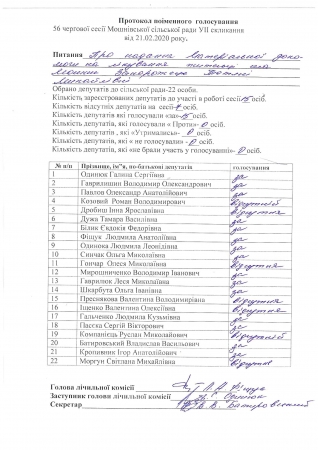 Протокол поіменного голосування
56 чергової сесії Мошнівської сільської ради УІІ скликання
від 21.02.2020 року.
Питання Про надання матеріальної допо-
моги на лікування жительці села
Обрано депутатів до сільської ради-22 особи.
Кількість зареєстрованих депутатів до участі в роботі сесії 15 осіб.
Кількість відсутніх депутатів на сесії осіб.
Кількість депутатів які голосували «за» 15 осіб.
Кількість депутатів, які голосували « Проти» - 0 осіб.
Кількість депутатів, які , «Утримались» - 0 осіб.
Кількість депутатів, які « не голосували» - 0 осіб.
Кількість депутатів, які «не брали участь у голосуванні» - 0 осіб.
№ п/п Прізвище, ім"я, по-батькові депутатів голосування
1 Одинюк Галина Сергіївна за
2 Гаврилишин Володимир Олександрович за
3 Павлов Олександр Анатолійович за
4 Козовий Роман Володимирович відсутній
5 Дробиш Інна Ярославівна відсутня
6 Дужа Тамара Василівна за
7 Білик Євдокія Федорівна за
8 Фіщук Людмила Анатоліївна за
9 Одинока Людмила Леонідівна за
10 Синчак Ольга Миколаївна за
11 Гончар Олеся Миколаївна відсутня
12 Мирошниченко Володимир Іванович за
13 Гаврилюк Леся Миколаївна за
14 Шкарбута Ольга Іванівна за
15 Преснякова Валентина Володимирівна відсутня
16 Іщенко Валентина Олексіївна відсутня
17 Гальченко Людмила Кузьмівна за
18 Пасєка Сергій Вікторович за
19 Компанієць Руслан Миколайович відсутній
20 Батировський Владислав Васильович за
21 Кропивник Ігор Анатолійович за
22 Моргун Світлана Михайлівна відсутня
Голова лічильної комісії
Заступник голови лічильної комісії
Секретар